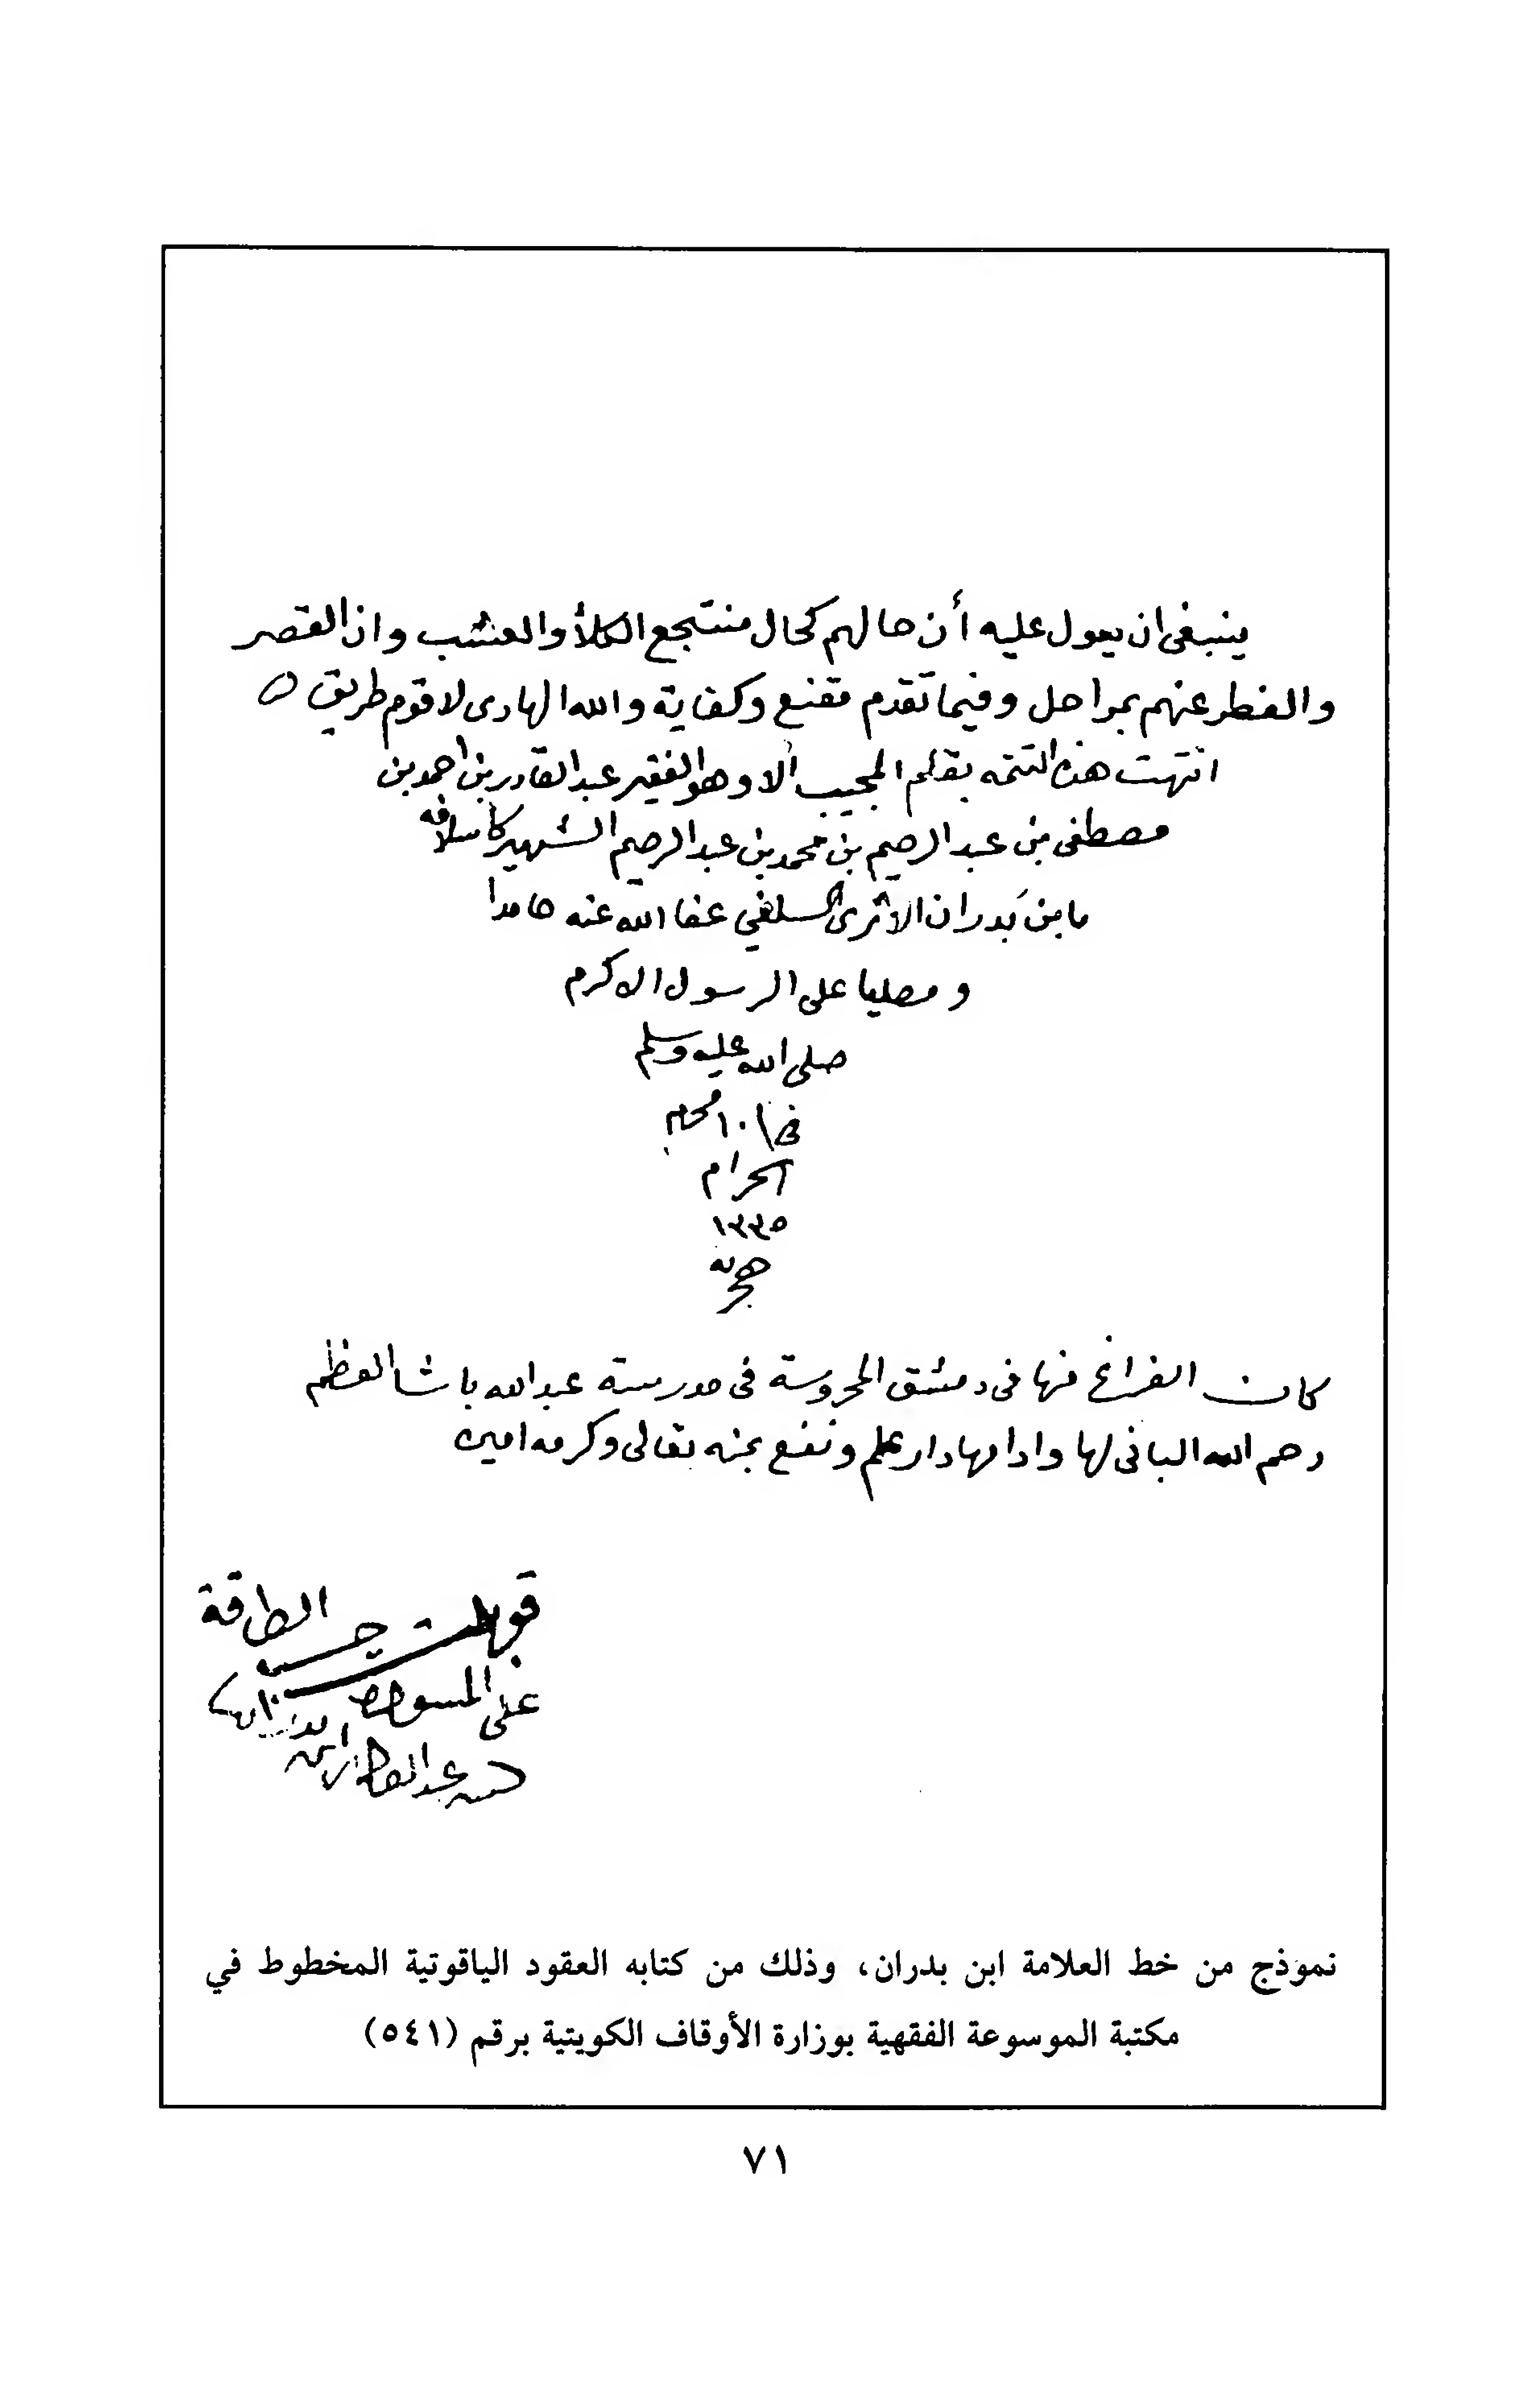 ينبغى ان يعول عليه أن حالهم كحال منتجع الكلأ والعشب وان القصر
والفطر عنهم بمراحل وفيما تقدم مقنع وكفاية والله الهادى لاقوم طريق
انتهت هذه التتمه بقلم المجيب ألا وهو الفقير عبد القادر بن احمد بن
مصطفى بن عبد الرحيم بن محمد بن عبد الرحيم الشهير كأسلافه
بابن بدران الاثرى السلفي عفا الله عنه حامدا
ومصليا على الرسول الاكرم
صلى الله عليه وسلم
فى ١٠ محرم
الحرام
١٣٣٥
هجريه
كان الفراغ منها فى دمشق المحروسة فى مدرسة عبد الله باشا العظم
رحم الله البانى لها وادامها دار علم ونفع بمنه تعالى وكرمه امين
قوبلت حسب الطاقة
على المسوده
عبد القادر
نموذج من خط العلامة ابن بدران، وذلك من كتابه العقود الياقوتية المخطوط في
مكتبة الموسوعة الفقهية بوزارة الأوقاف الكويتية برقم (٥٤١)
٧١